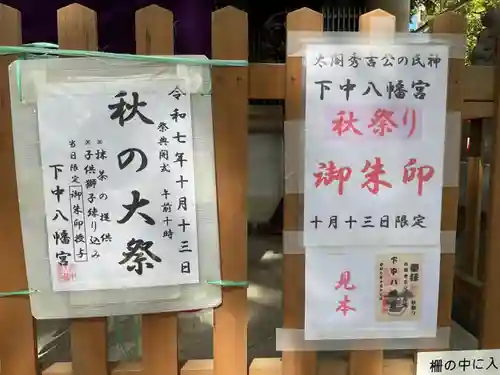 令和七年十月十三日
秋の大祭
祭典開式 午前十時
※抹茶の提供
※子供獅子練り込み
当日限定 御朱印授与
下中八幡宮
太閤秀吉公の氏神
下中八幡宮
秋祭り
御朱印
十月十三日限定
見本
下中八
柵の中に入